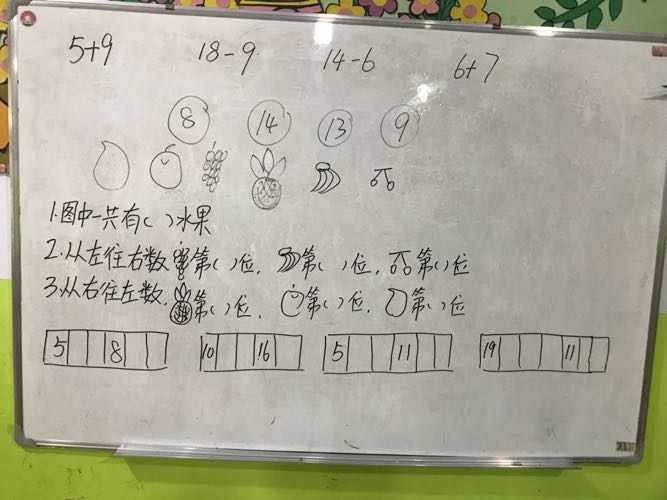 5+9 18-9 14-6 6+7
8 14 13 9
1.图中一共有( )水果
2.从左往右数 第( )位, 第( )位, 第( )位
3.从右往左数, 第( )位, 第( )位, 第( )位
5 8 10 16 5 11 19 11